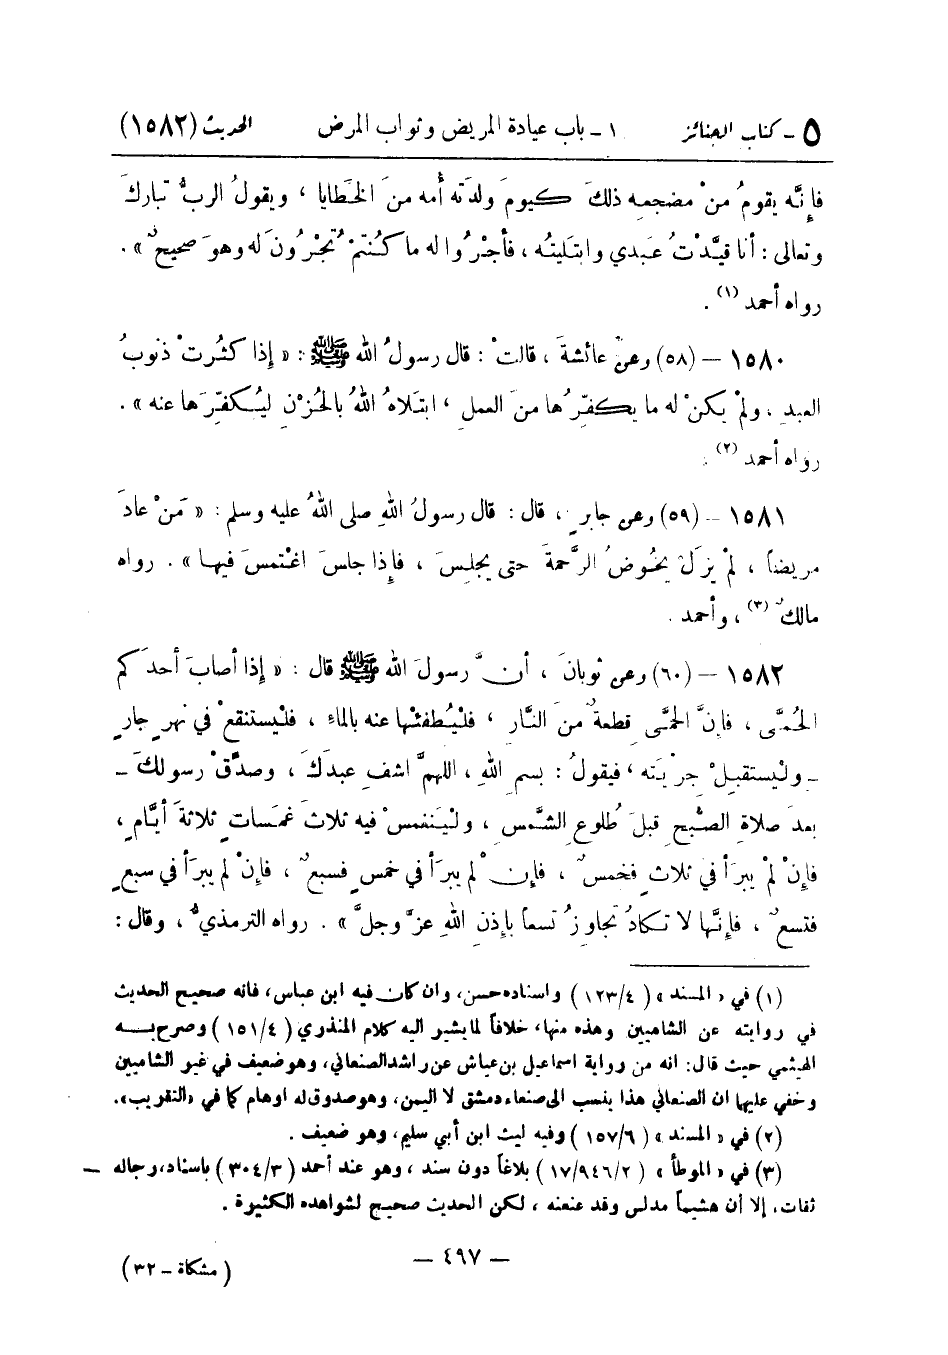 ٥ - كتاب الجنائز ١ - باب عيادة المريض وثواب المرض الحديث (١٥٨٢)
فإنَّه يقومُ منْ مضجعه ذلكَ كيومَ ولدَته أُمه منَ الخَطايا ، ويقولُ الربُّ تباركَ
وتعالى : أنا قيَّدْتُ عَبدي وابتليتُه ، فأجْرُوا له ما كُنتمْ تُجْرُون له وهوَ صحيحٌ » .
رواه أحمد (١) .
١٥٨٠ – (٥٨) وعنْ عائشةَ ، قالتْ : قال رسولُ الله ﷺ : « إذا كثُرتْ ذنوبُ
العبدِ ، ولمْ يكنْ له ما يكفّرُها منَ العملِ ، ابتَلاهُ اللهُ بالحُزْنِ ليُكفّرَها عنه » .
رواه أحمد (٢) .
١٥٨١ – (٥٩) وعن جابرٍ ، قال : قال رسولُ اللهِ صلى اللهُ عليه وسلم : « مَنْ عادَ
مريضاً ، لمْ يزَلْ يخُوضُ الرَّحمةَ حتى يجلِسَ ، فإذا جلسَ اغتمسَ فيها » . رواه
مالكٌ (٣) ، وأحمد .
١٥٨٢ – (٦٠) وعن ثوبانَ ، أنَّ رسولَ الله ﷺ قال : « إذا أصابَ أحدَكم
الحُمَّى ، فإنَّ الحمَّى قطعةٌ منَ النَّار ، فلْيُطفئْها عنه بالماءِ ، فلْيستنقعْ في نهرٍ جارٍ
ـ ولْيستقبلْ جِرْيتَه ، فيقولُ : بسمِ اللهِ ، اللهمَّ اشفِ عبدَكَ ، وصدِّقْ رسولكَ ـ
بعدَ صلاةِ الصُّبحِ قبلَ طُلوعِ الشَّمسِ ، ولْيَنغمسْ فيه ثلاثَ غمَساتٍ ثلاثةَ أيَّامٍ ،
فإنْ لمْ يبرَأ في ثلاثٍ فخمسٌ ، فإن لْم يبرَأ في خمسٍ فسبعٌ ، فإنْ لم يبرَأ في سبعٍ
فتسعٌ ، فإنَّها لا تكادُ تجاوزُ تسعاً بإذنِ اللهِ عزَّ وجلَّ » . رواه الترمذيُّ ، وقال :
(١) في « المسند » (١٢٣/٤) واسناده حسن، وان كان فيه ابن عباس، فانه صحيح الحديث
في روايته عن الشاميين وهذه منها، خلافاً لما يشير اليه كلام المنذري (١٥١/٤) وصرح بـه
الهيثمي حيث قال: انه من رواية اسماعيل بن عياش عن راشد الصنعاني، وهو ضعيف في غير الشاميين
وخفي عليها ان الصنعاني هذا ينسب الى صنعاء دمشق لا اليمن، وهو صدوق له اوهام كما في «التقريب».
(٢) في « المسند » (١٥٧/٦) وفيه ليث ابن أبي سليم، وهو ضعيف .
(٣) في « الموطأ » (١٧/٩٤٦/٢) بلاغاً دون سند ، وهو عند أحمد (٣٠٤/٣) باسناد، رجاله –
ثقات، إلا أن هشيماً مدلس وقد عنعنه ، لكن الحديث صحيح لشواهده الكثيرة .
– ٤٩٧ –
( مشكاة – ٣٢ )